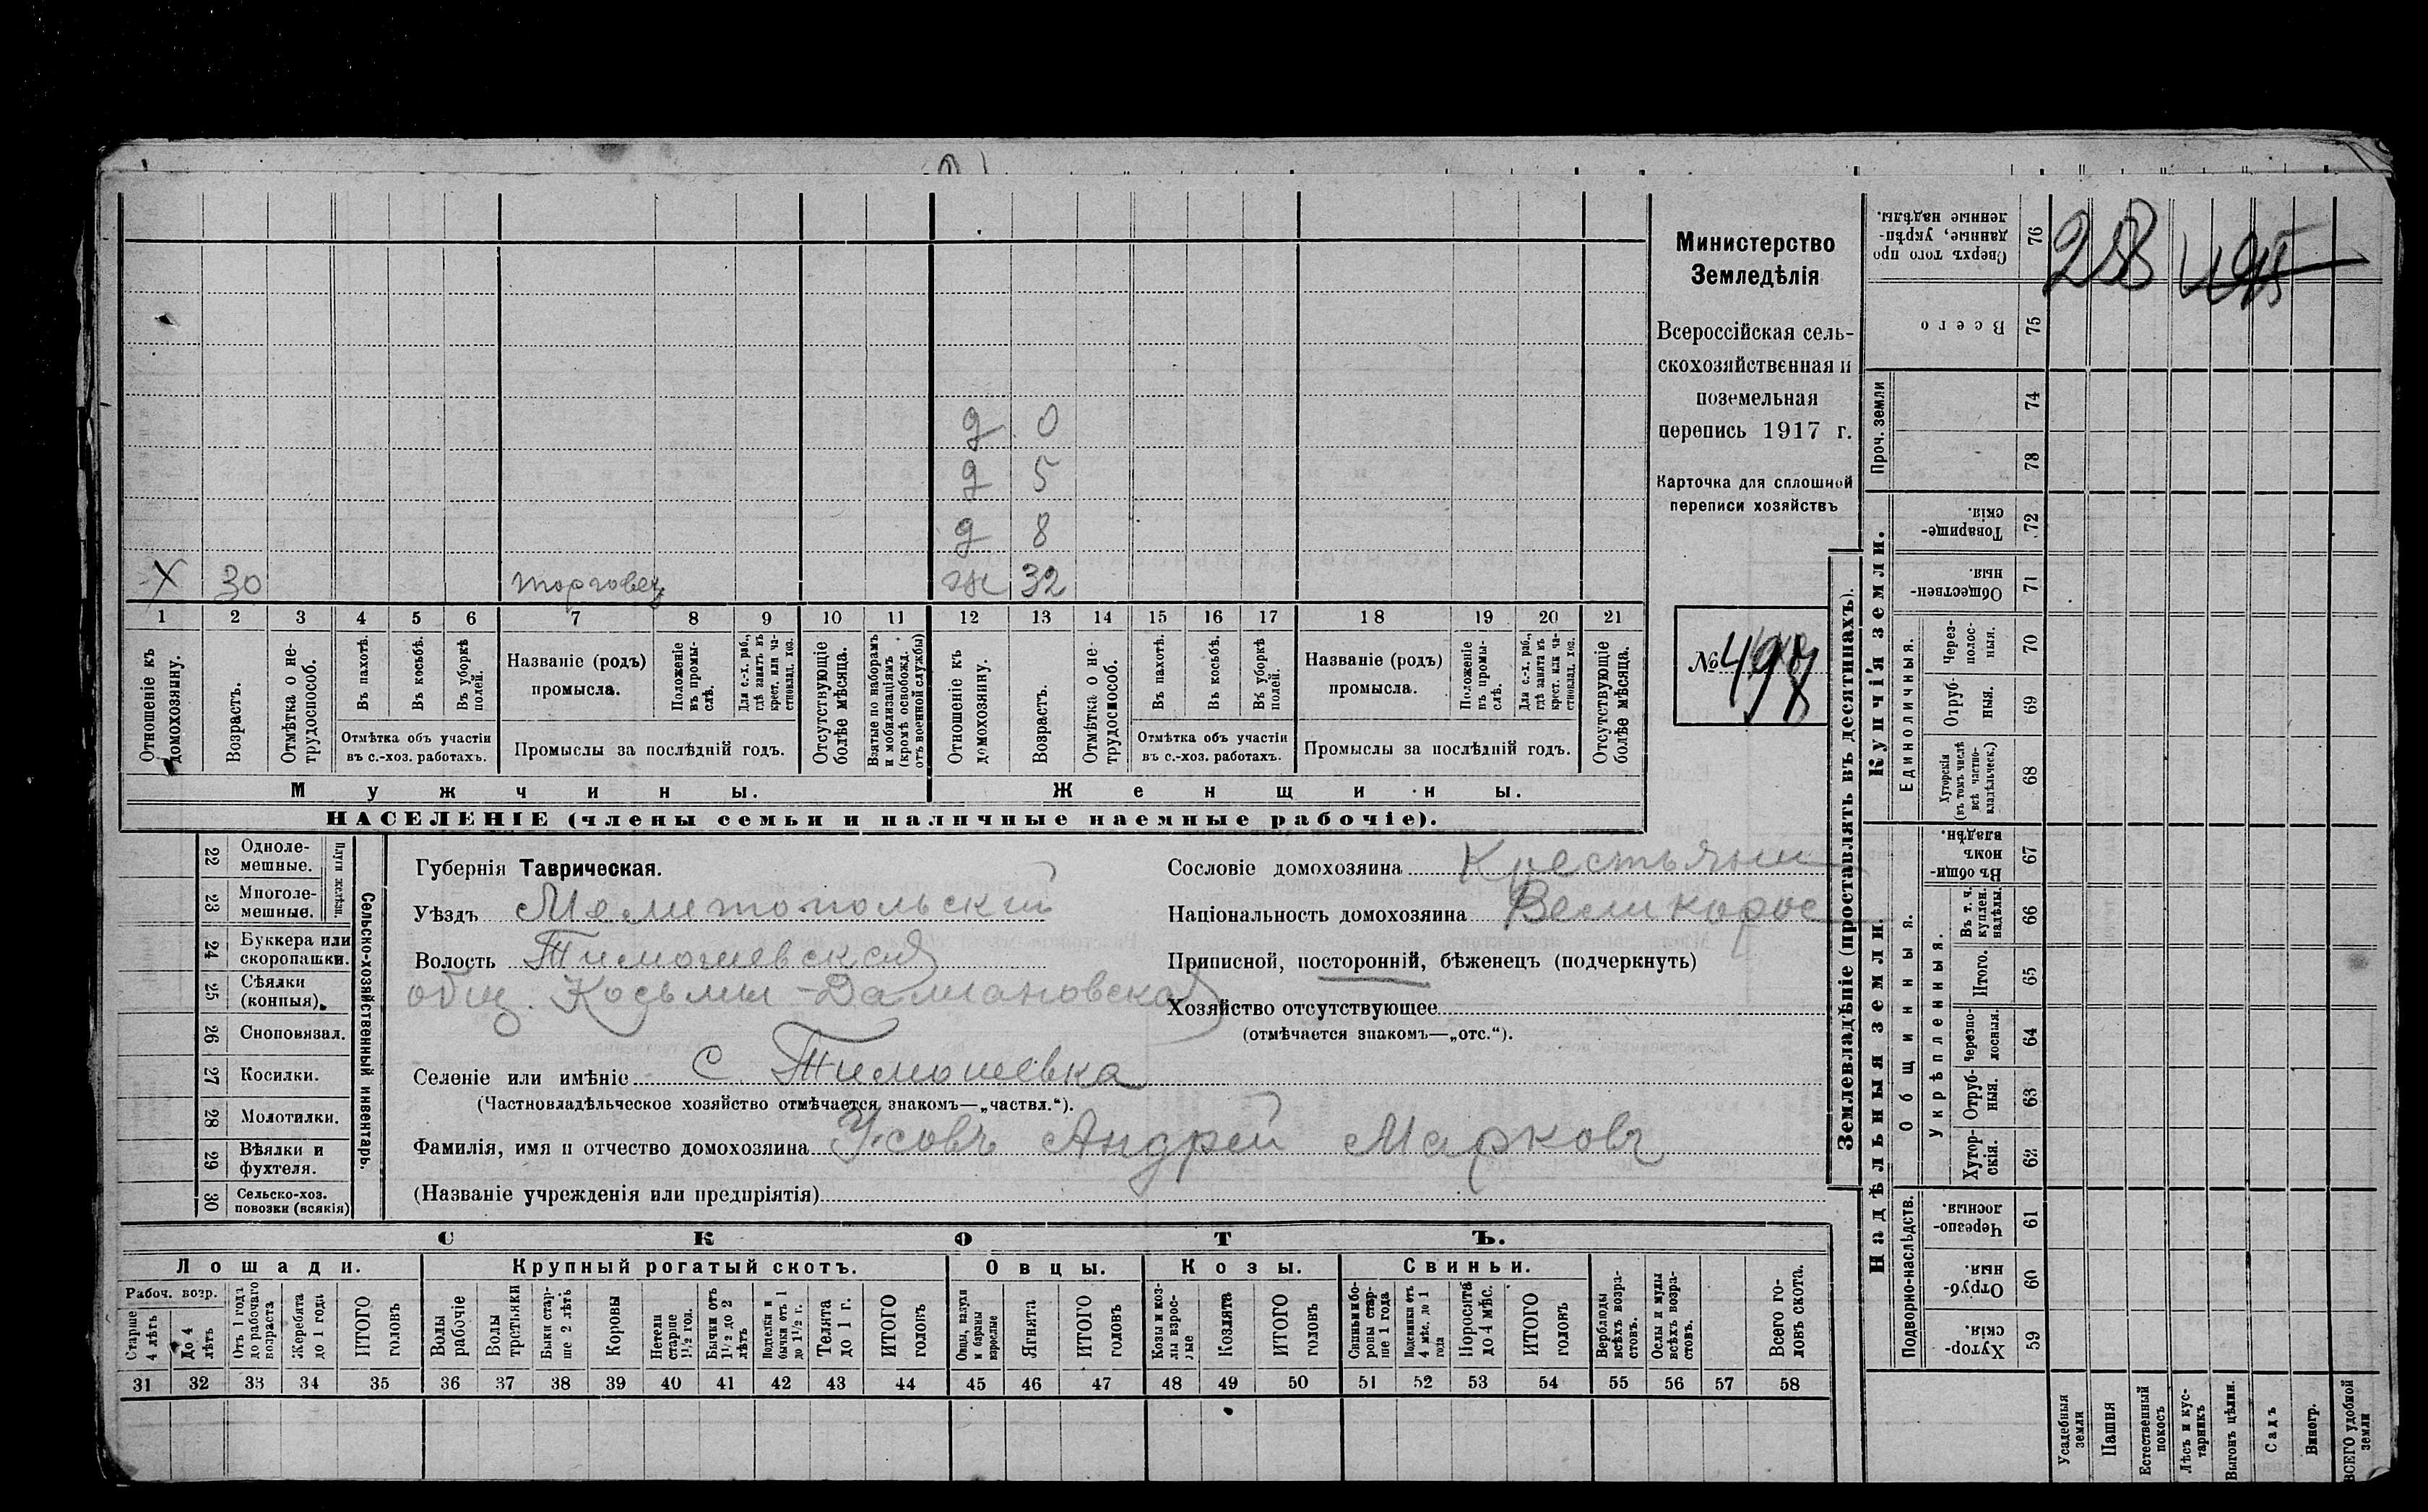 Министерство
Земледѣлія
Всероссійская сель-
скохозяйственная и
поземельная
перепись 1917 г.
Карточка для сплошной
переписи хозяйствъ
№ 498
д 0
д 5
д 8
X 30 торговец ж 32
1 2 3 4 5 6 7 8 9 10 11 12 13 14 15 16 17 18 19 20 21
Отношеніе къ домохозяину.
Возрастъ.
Отмѣтка о не-трудоспособ.
Въ пахотѣ.
Въ косьбѣ.
Въ уборкѣ полей.
Отмѣтка объ участіи
въ с.-хоз. работахъ.
Названіе (родъ)
промысла.
Положеніе въ промы-слѣ.
Для с.-х. раб., гдѣ занятъ въ крест. или ча-стновлад. хоз.
Промыслы за послѣдній годъ.
Отсутствующіе болѣе мѣсяца.
Взятые по наборамъ и мобилизаціямъ (кромѣ освобожд. отъ военной службы)
Отношеніе къ домохозяину.
Возрастъ.
Отмѣтка о не-трудоспособ.
Въ пахотѣ.
Въ косьбѣ.
Въ уборкѣ полей.
Отмѣтка объ участіи
въ с.-хоз. работахъ.
Названіе (родъ)
промысла.
Положеніе въ промы-слѣ.
Для с.-х. раб., гдѣ занята въ крест. или ча-стновлад. хоз.
Промыслы за послѣдній годъ.
Отсутствующіе болѣе мѣсяца.
Мужчины.
Женщины.
НАСЕЛЕНІЕ (члены семьи и наличные наемные рабочіе).
22 Одноле-мешные.
23 Многоле-мешные.
Плуги желѣзн.
24 Буккера или скоропашки.
25 Сѣялки (конныя).
26 Сноповязал.
27 Косилки.
28 Молотилки.
29 Вѣялки и фухтеля.
30 Сельско-хоз. повозки (всякія)
Сельско-хозяйственный инвентарь.
Губернія Таврическая.
Уѣздъ Мелитопольский
Волость Тимошевская
общ. Косьмы-Дамиановская
Сословіе домохозяина Крестьянин
Національность домохозяина Великорос
Приписной, посторонній, бѣженецъ (подчеркнуть)
Хозяйство отсутствующее
(отмѣчается знакомъ—„отс.“).
Селеніе или имѣніе С. Тимошевка
(Частновладѣльческое хозяйство отмѣчается знакомъ—„частвл.“).
Фамилія, имя и отчество домохозяина Усовъ Андрей Марковъ
(Названіе учрежденія или предпріятія)
СКОТЪ.
Лошади.
Крупный рогатый скотъ.
Овцы.
Козы.
Свиньи.
Рабоч. возр.
Старше 4 лѣтъ
До 4 лѣтъ
Отъ 1 года до рабочаго возраста
Жеребята до 1 года
ИТОГО головъ
Волы рабочіе
Волы третьяки
Быки стар-ше 2 лѣтъ
Коровы
Нетели старше 1½ год.
Бычки отъ 1½ до 2 лѣтъ
Подтелки и бычки отъ 1 до 1½ г.
Телята до 1 г.
ИТОГО головъ
Овцы, валухи и бараны взрослые
Ягнята
ИТОГО головъ
Козы и коз-лы взрос-лые
Козлята
ИТОГО головъ
Свиньи и бо-ровы стар-ше 1 года
Подсвинки отъ 4 мѣс. до 1 года
Поросята до 4 мѣс.
ИТОГО головъ
Верблюды всѣхъ возра-стовъ.
Ослы и мулы всѣхъ возра-стовъ.
Всего го-ловъ скота.
31 32 33 34 35 36 37 38 39 40 41 42 43 44 45 46 47 48 49 50 51 52 53 54 55 56 57 58
Землевладѣніе (проставлять въ десятинахъ).
Сверхъ того про-данные, укрѣп-ленные надѣлы. 76
258
Всего 75
Проч. земли
74
78
Купчія земли.
Товарище-скія. 72
Обществен-ныя. 71
Единоличныя.
Через-полос-ныя. 70
Отруб-ныя. 69
Хуторскія (въ томъ числѣ всѣ частно-владѣльческ.) 68
Надѣльныя земли.
Общинныя.
Въ общин-номъ владѣн. 67
Укрѣпленныя.
Въ т. ч. куплен. надѣлы. 66
Итого. 65
Черезпо-лосныя. 64
Отруб-ныя. 63
Хутор-скія. 62
Подворно-наслѣдств.
Черезпо-лосныя. 61
Отруб-ныя. 60
Хутор-скія. 59
Усадебныя земли
Пашня
Естественный покосъ
Лѣсъ и кус-тарникъ
Выгонъ цѣлин.
Садъ
Виногр.
ВСЕГО удобной земли